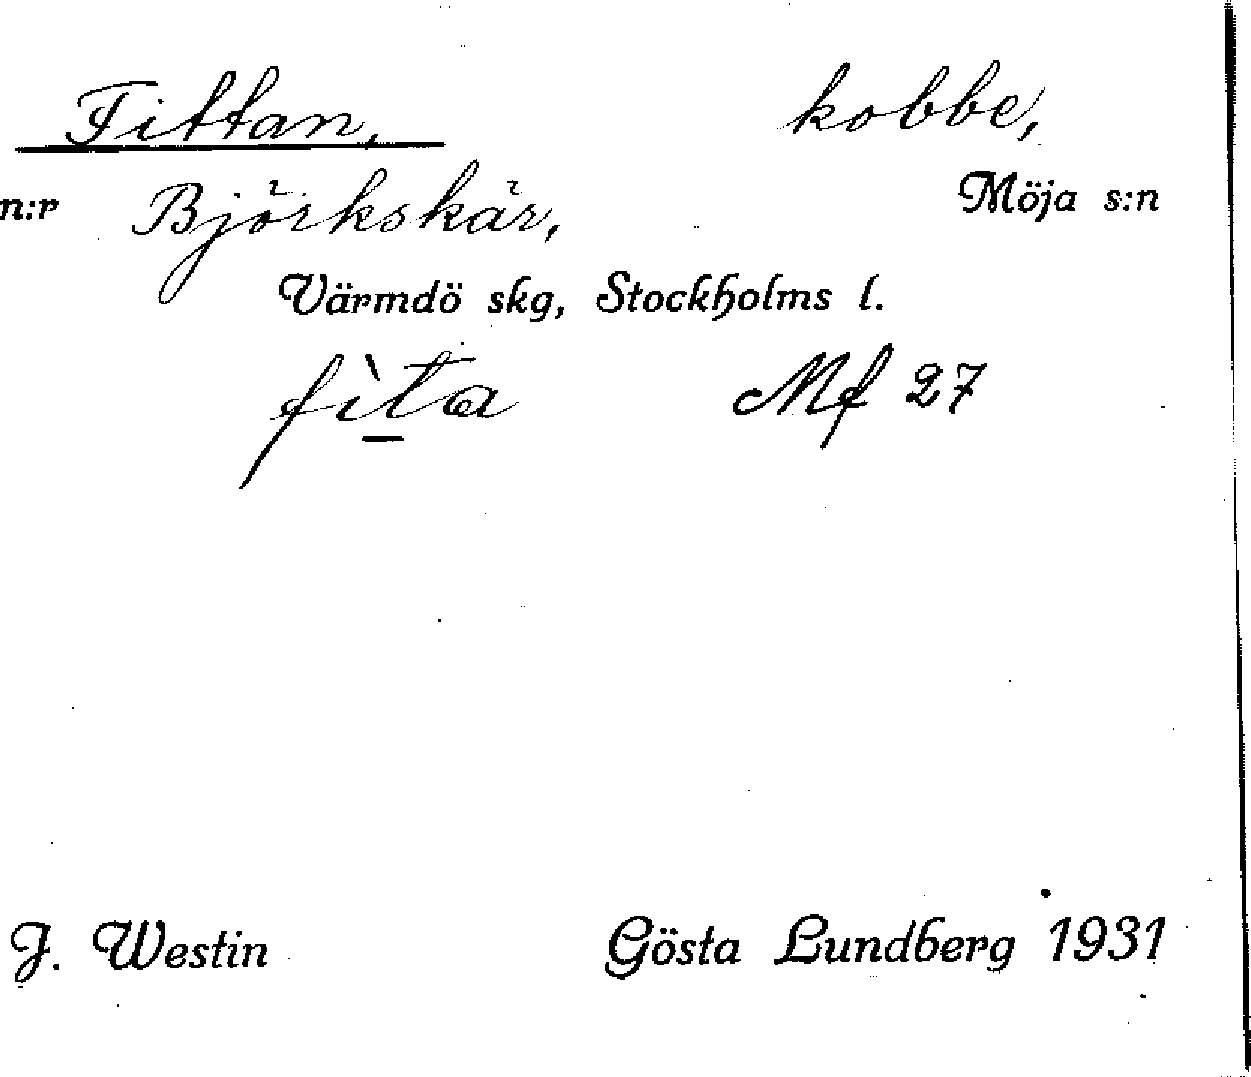 Fittan, kobbe,
n:r Björkskär, Möja s:n
Värmdö skg, Stockholms l.
fìta Mf 27
J. Westin Gösta Lundberg 1931